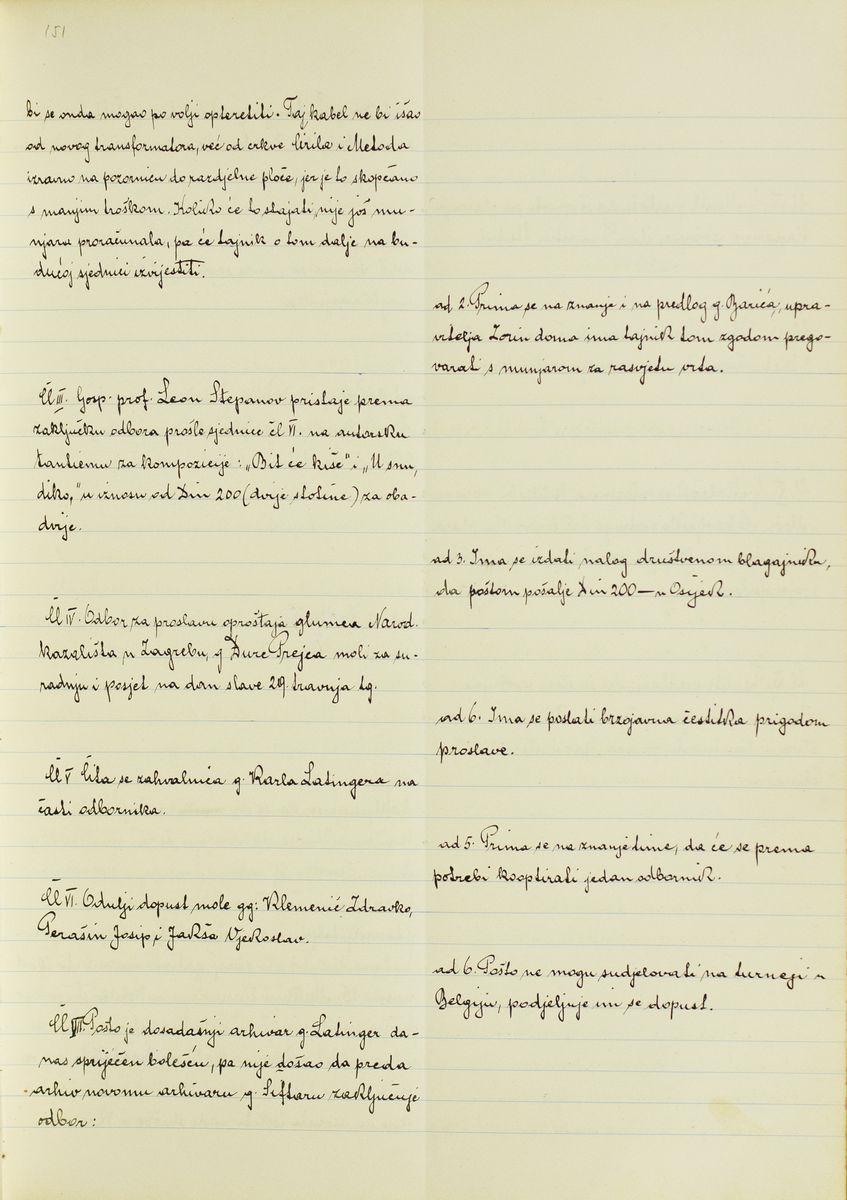 151
bi se onda mogao po volji opteretiti. Taj kabel ne bi išao
od novog transformatora, već od crkve Ćirila i Metoda
izravno na pozornicu do razdjelne ploče, jer je to skopčano
s manjim troškom. Koliko će to stajati, nije još mu-
njara proračunala, pa će tajnik o tom dalje na bu-
dućoj sjednici izvijestiti.
ad 2. Prima se na znanje i na predlog g. Barića, upra-
vitelja Zorin doma ima tajnik tom zgodom prego-
varati s munjarom za rasvjetu vrta.
Čl III. Gosp. prof. Leon Stepanov pristaje prema
zaključku odbora prošle sjednice čl VI. na autorsku
tantiemu za kompozicije: „Bit će kiše" i „U snu,
diko," u iznosu od Din 200 (dvije stotine) za oba-
dvije.
ad 3. Ima se izdati nalog društvenom blagajniku,
da poštom pošalje Din 200 — u Osijek.
Čl IV. Odbor za proslavu oproštaja glumca Narod.
kazališta u Zagrebu, g Đure Prejca moli za su-
radnju i posjet na dan slave 29. travnja tg.
ad 6. Ima se poslati brzojavna čestitka prigodom
proslave.
Čl V Čita se zahvalnica g. Karla Latingera na
časti odbornika.
ad 5. Prima se na znanje time, da će se prema
potrebi kooptirati jedan odbornik.
Čl VI. Odulji dopust mole gg: Klemenić Zdravko,
Perašin Josip i Jakša Vjekoslav.
ad 6. Pošto ne mogu sudjelovati na turneji u
Belgiju, podjeljuje im se dopust.
Čl VII. Pošto je dosadašnji arhivar g. Latinger da-
nas spriječen bolešću, pa nije došao da preda
arhiv novomu arhivaru g. Šiftaru zaključuje
odbor: